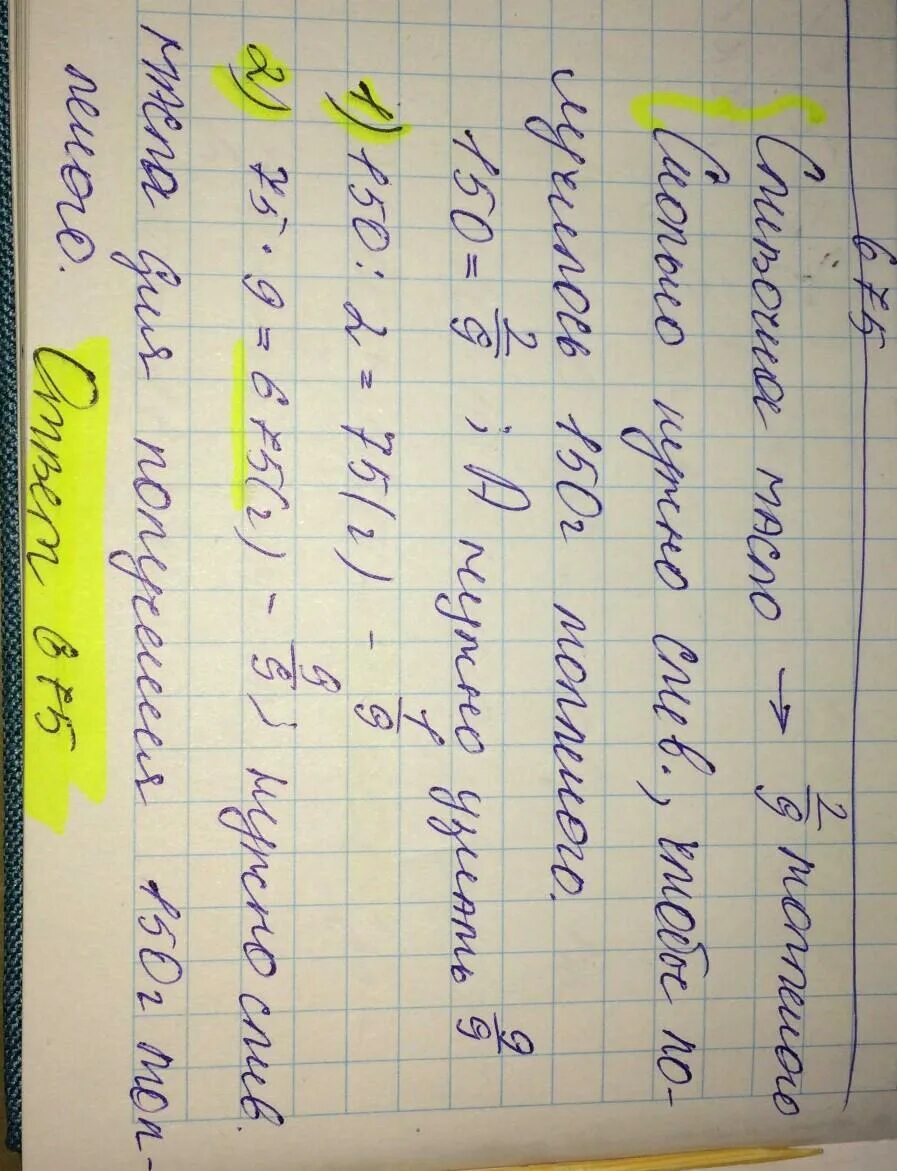 675
Сливочное масло → 2/9 топленого
Сколько нужно слив., чтобы по-
лучилось 150г топленого.
150 = 2/9 ; А нужно узнать 9/9
1) 150 : 2 = 75(г) - 1/9
2) 75 · 9 = 675(г) - 9/9} нужно слив.
масла для получения 150г топ-
леного.
Ответ 675